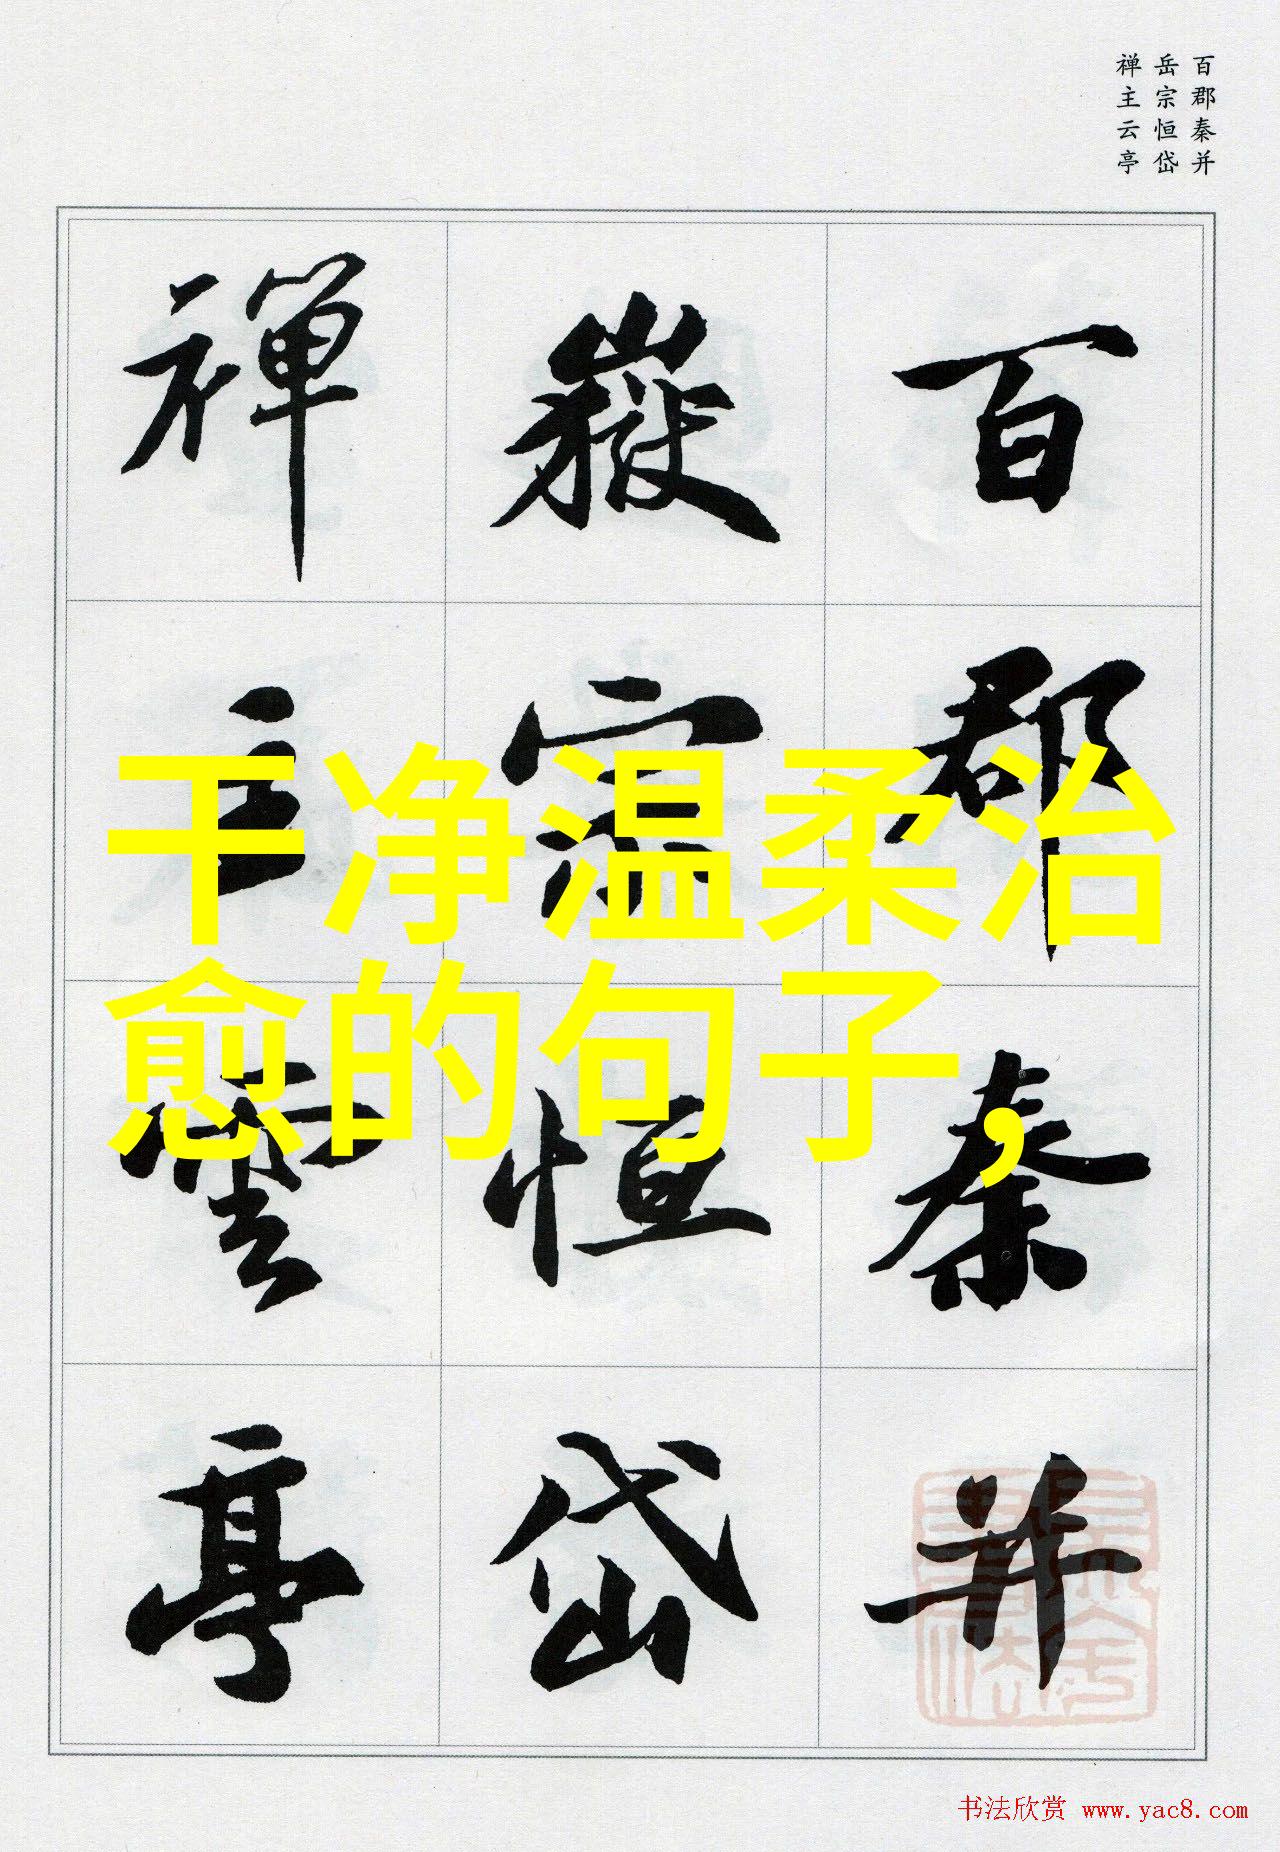 百郡秦并
岳宗恒岱
禅主云亭
百郡秦并
嶽宗恒岱
禅主雲亭
干净温柔治
愈的句子，
书法欣赏 www.yac8.com